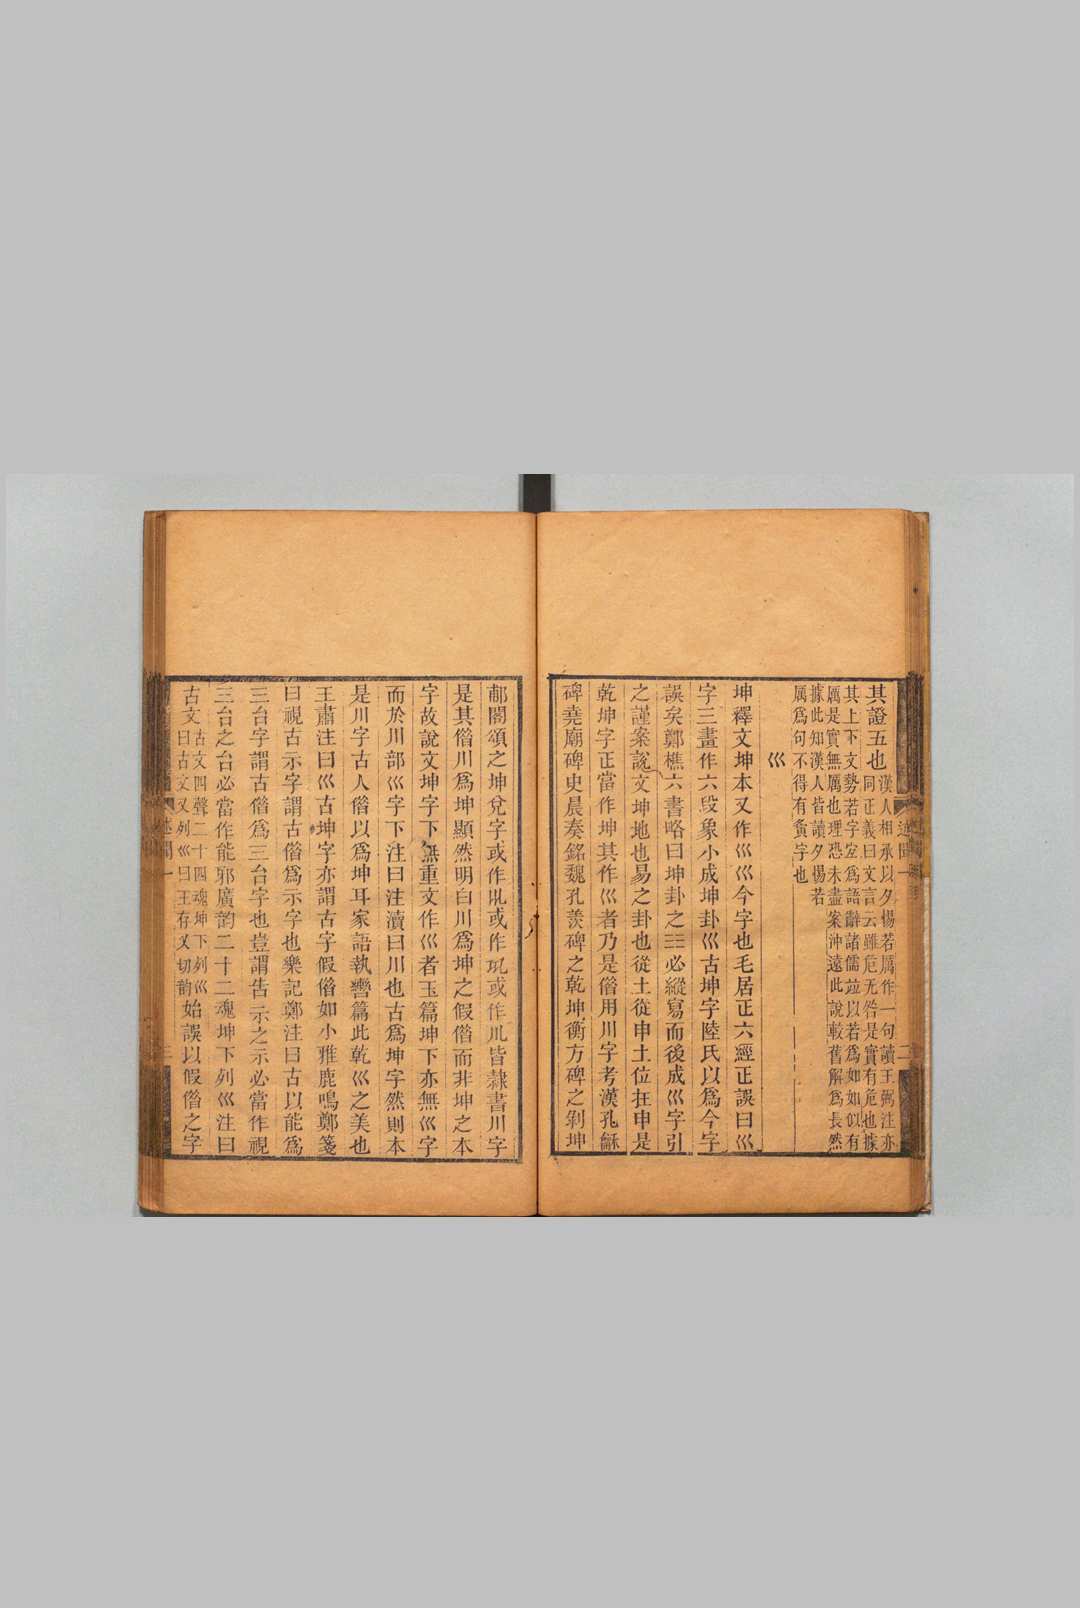 其證五也
漢人相承以夕惕若厲作一句讀王弼注亦
同正義曰文言云雖危无咎是實有危也據
其上下文勢若字宜爲語辭諸儒竝以若爲如如似有
厲是實無厲也理恐未盡案沖遠此說較舊解爲長然
據此知漢人皆讀夕惕若
厲爲句不得有夤字也
巛
坤釋文坤本又作巛巛今字也毛居正六經正誤曰巛
字三畫作六段象小成坤卦巛古坤字陸氏以爲今字
誤矣鄭樵六書略曰坤卦之☷必縱寫而後成巛字引
之謹案說文坤地也易之卦也從土從申土位在申是
乾坤字正當作坤其作巛者乃是借用川字考漢孔龢
碑堯廟碑史晨奏銘魏孔羨碑之乾坤衡方碑之剝坤
郙閣頌之坤兌字或作或作或作皆隸書川字
是其借川爲坤顯然明白川爲坤之假借而非坤之本
字故說文坤字下無重文作巛者玉篇坤下亦無巛字
而於川部巛字下注曰注瀆曰川也古爲坤字然則本
是川字古人借以爲坤耳家語執轡篇此乾巛之美也
王肅注曰巛古坤字亦謂古字假借如小雅鹿鳴鄭箋
曰視古示字謂古借爲示字也樂記鄭注曰古以能爲
三台字謂古借爲三台字也豈謂告示之示必當作視
三台之台必當作能邪廣韵二十二魂坤下列巛注曰
古文
古文四聲二十四魂坤下列巛
曰古文又列巛曰王存乂切韵
始誤以假借之字
述聞一